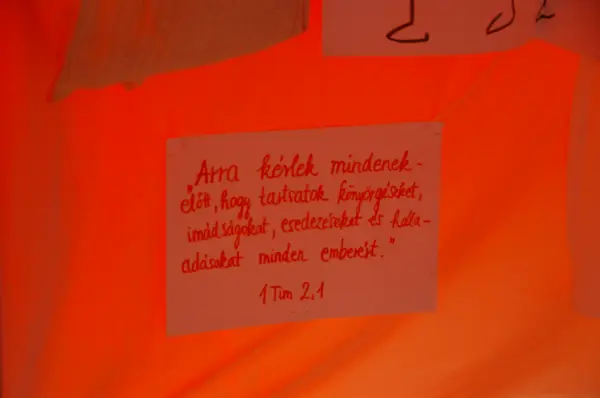 "Arra kérlek mindenek-
előtt, hogy tartsatok könyörgéseket,
imádságokat, esedezéseket és hála-
adásokat minden emberért."
1 Tim 2,1